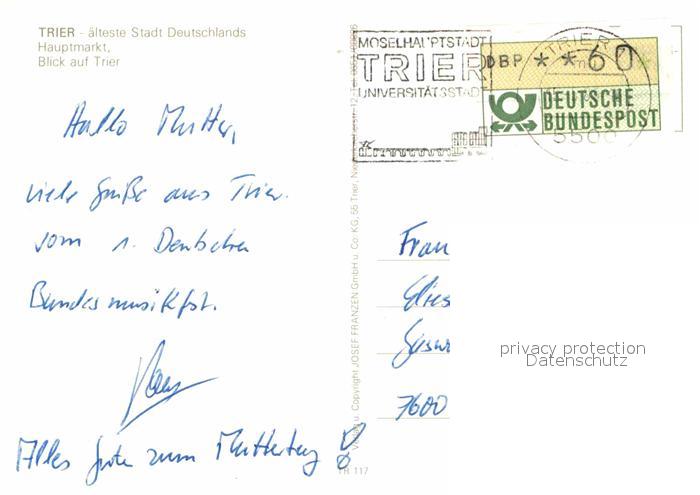 TRIER - älteste Stadt Deutschlands
Hauptmarkt,
Blick auf Trier
MOSELHAUPTSTADT
TRIER
UNIVERSITÄTSSTADT
TRIER
5500
DBP * * 60
DEUTSCHE
BUNDESPOST
Hallo Mutter,
viele Grüße aus Trier.
vom 1. Deutschen
Bundesmusikfest.
Alles Gute zum Muttertag!
Copyright JOSEF FRANZEN GmbH u. Co KG, 55 Trier,
TR 117
Frau
7600
privacy protection
Datenschutz